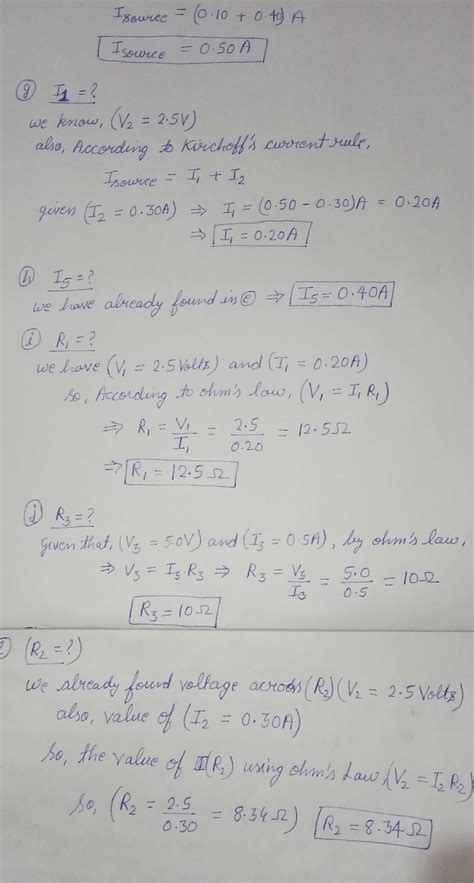 I source = (0.10 + 0.40) A
I source = 0.50 A
(g) I1 = ?
we know, (V2 = 2.5V)
also, According to Kirchoff's current rule,
I source = I1 + I2
given (I2 = 0.30A) ⇒ I1 = (0.50 - 0.30)A = 0.20A
⇒ I1 = 0.20A
(h) I5 = ?
we have already found in (e) ⇒ I5 = 0.40A
(i) R1 = ?
we have (V1 = 2.5 Volts) and (I1 = 0.20A)
So, According to ohm's law, (V1 = I1 R1)
⇒ R1 = V1/I1 = 2.5/0.20 = 12.5Ω
⇒ R1 = 12.5 Ω
(j) R3 = ?
given that, (V3 = 5.0V) and (I3 = 0.5A), by ohm's law,
⇒ V3 = I3·R3 ⇒ R3 = V3/I3 = 5.0/0.5 = 10Ω
R3 = 10Ω
(R2 = ?)
We already found voltage across (R2) (V2 = 2.5 Volts)
also, value of (I2 = 0.30A)
So, the value of (R2) using ohm's Law, (V2 = I2 R2)
So, (R2 = 2.5/0.30 = 8.34 Ω) R2 = 8.34 Ω